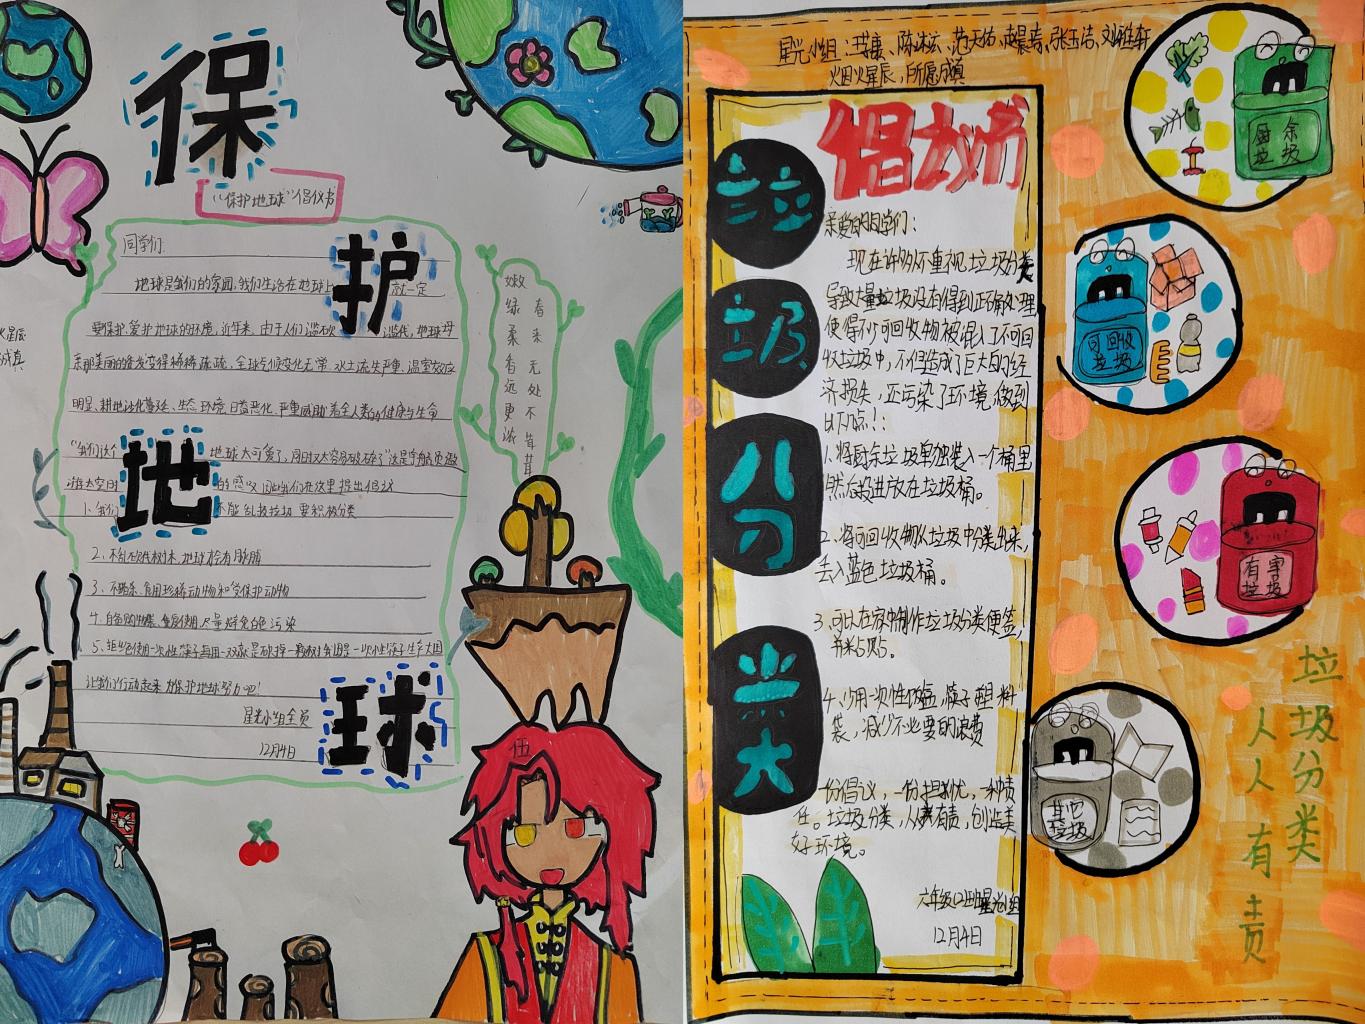 保
护
地
球
"保护地球"倡仪书
同学们:
地球是我们的家园,我们生活在地球上 就一定
要保护、爱护地球的环境,近年来,由于人们滥砍 滥伐,地球母
亲那美丽的秀发变得稀稀疏疏,全球气候变化无常,水土流失严重、温室效应
明显、耕地沙化蔓延、生态环境日益恶化,严重威胁着全人类的健康与生命
"我们这个 地球太可爱了,同时又太容易破碎了"这是宇航员遨
游太空时 的感叹 因此我们在这里提出倡议
1、我们 不能乱扔垃圾 要积极分类
2、不乱砍伐树木,地球才会有肺腑
3、不酷杀、食用珍稀动物和受保护动物
4、自备购物袋、重复使用尽量避免白色污染
5、拒绝使用一次性筷子
让我们行动起来 为保护地球努力吧!
星光小组全员
12月4日
嫩绿柔香远更浓
春来无处不茸茸
火星辰
成真
伍
星光小组:
烟火星辰,所愿成真
倡议书
垃
圾
分
类
亲爱的同学们:
现在许多人不重视垃圾分类
导致大量垃圾没有得到正确处理
使得不少可回收物被混入不可回
收垃圾中,不但造成了巨大的经
济损失,还污染了环境,做到
以下几点!:
1、将厨余垃圾单独装入一个桶里
然后投进放在垃圾桶。
2、将可回收物从垃圾中分类出来,
丢入蓝色垃圾桶。
3、可以在家中制作垃圾分类便签,
4、少用一次性 筷子 塑料
袋,减少不必要的浪费
一份倡议,一份担忧,一种责
任。垃圾分类,人人有责,创造美
好环境。
六年级(2)班星光小组
12月4日
厨余
垃圾
可回收
垃圾
有害
垃圾
其它
垃圾
垃圾分类
人人有责